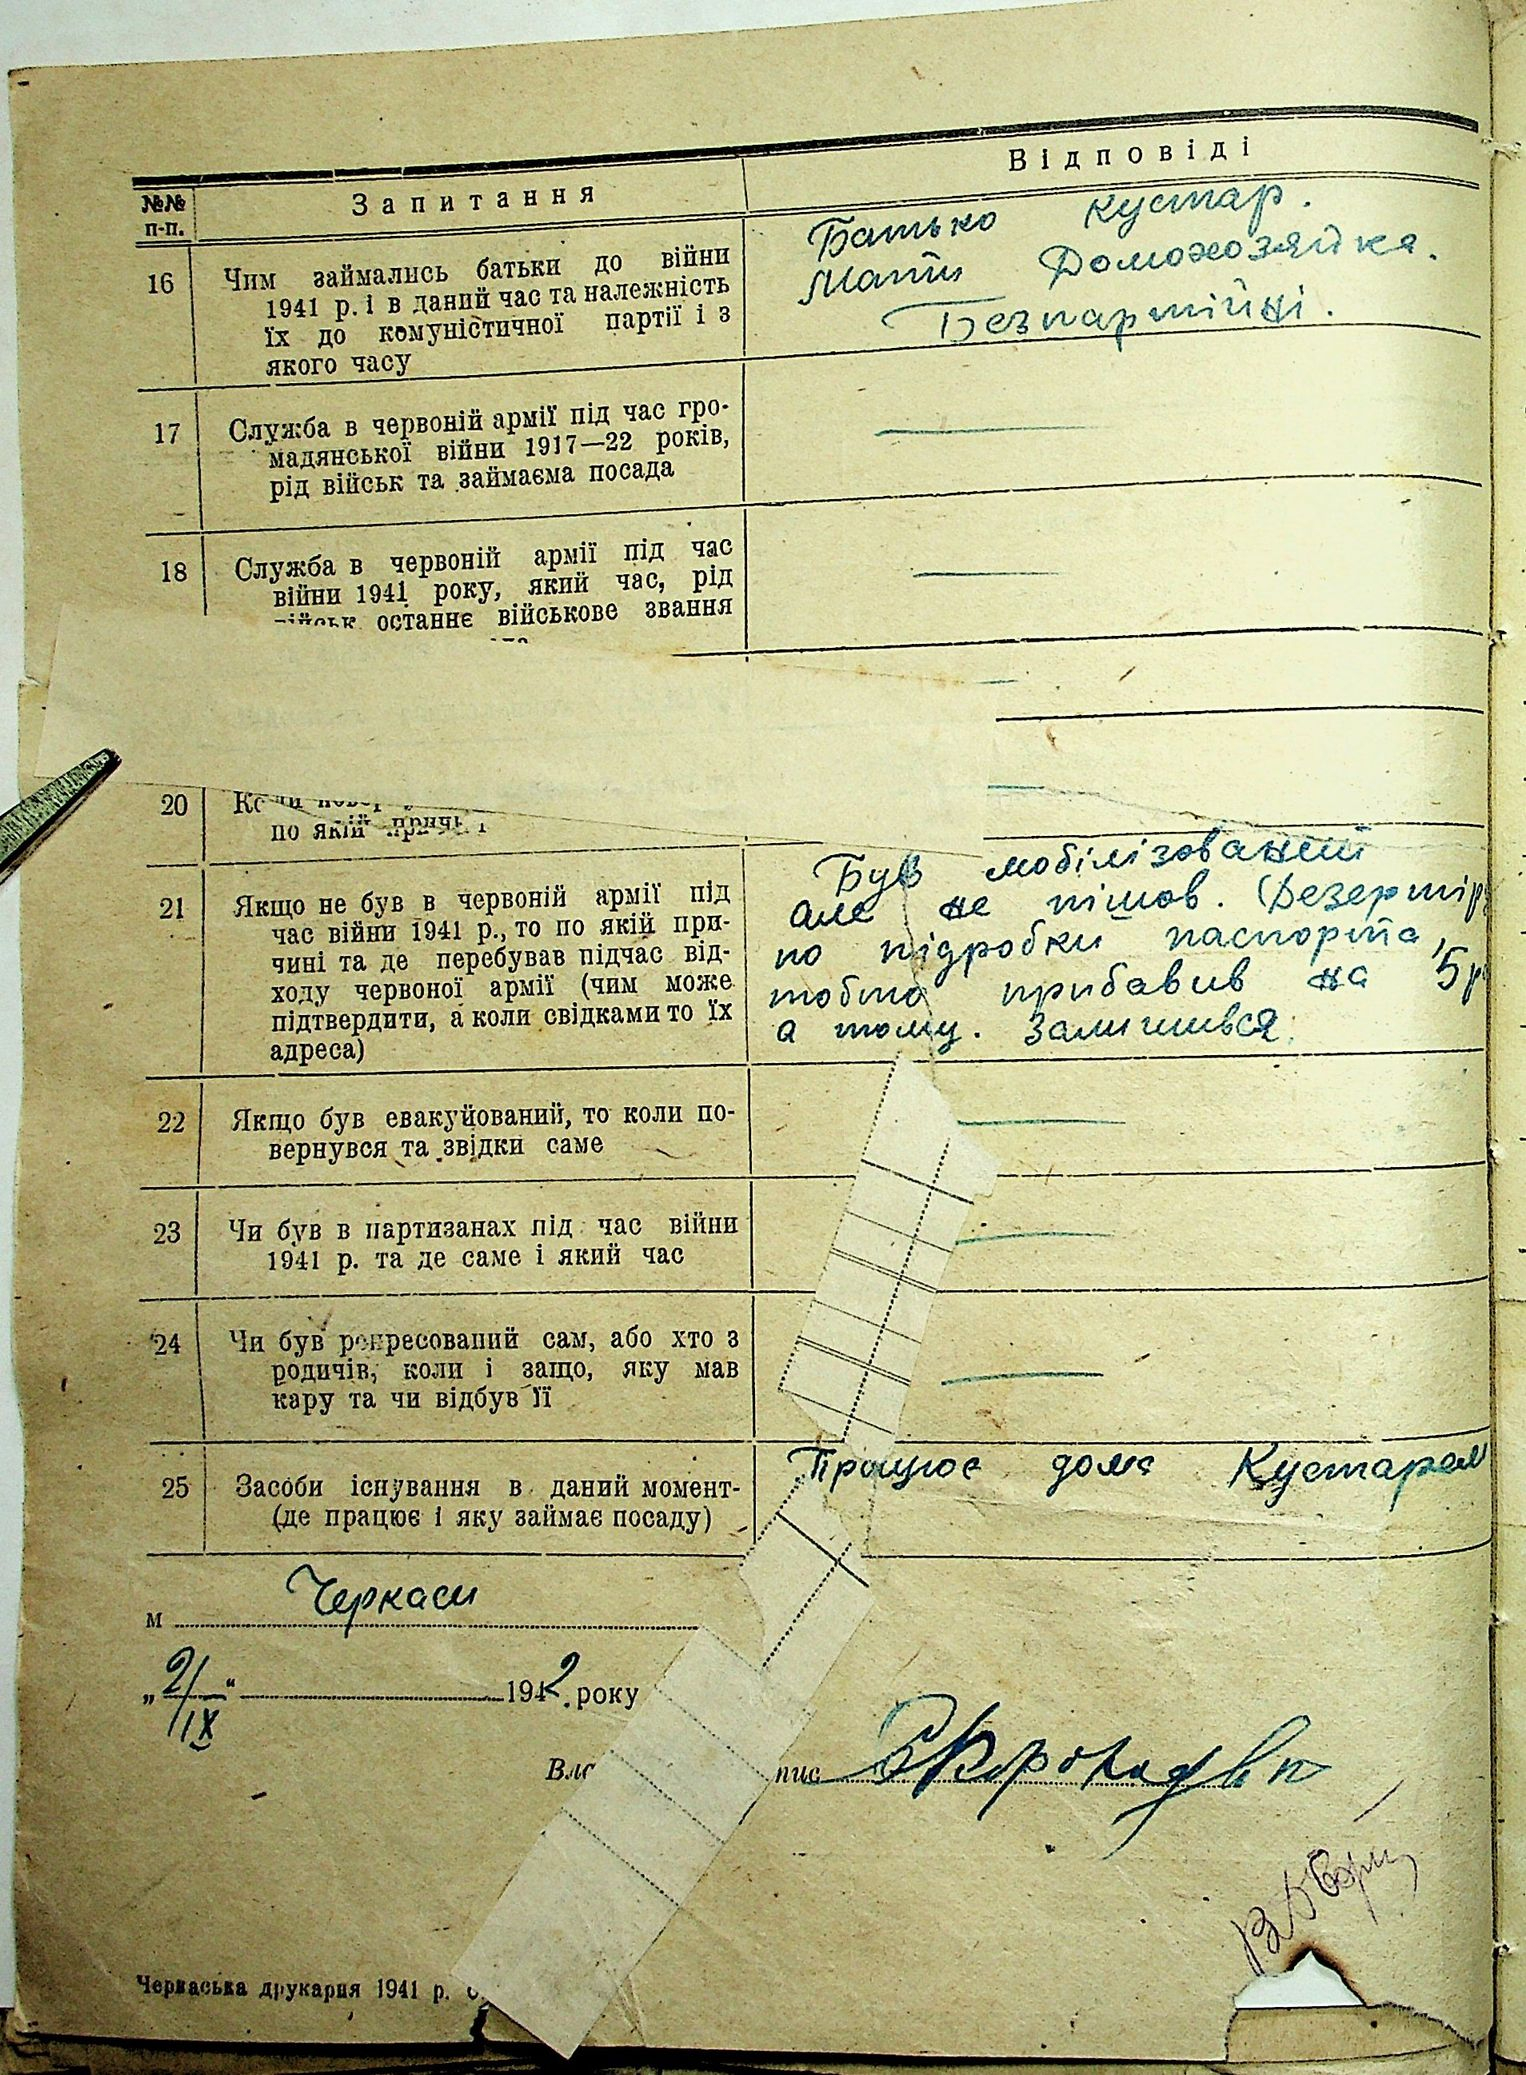 №№ п-п.
Запитання
Відповіді
16
Чим займались батьки до війни
1941 р. і в даний час та належність
їх до комуністичної партії і з
якого часу
Батько кустар.
Мати Домохозяйка.
Безпартійні.
17
Служба в червоній армії під час гро-
мадянської війни 1917—22 років,
рід військ та займаєма посада
18
Служба в червоній армії під час
війни 1941 року, який час, рід
військ останнє військове звання
20
по якій
21
Якщо не був в червоній армії під
час війни 1941 р., то по якій при-
чині та де перебував підчас від-
ходу червоної армії (чим може
підтвердити, а коли свідками то їх
адреса)
Був мобілізований
але не пішов. (Дезертір
по підробки паспорта,
тобто прибавив на 5р
а тому. Залишився.
22
Якщо був евакуйований, то коли по-
вернувся та звідки саме
23
Чи був в партизанах під час війни
1941 р. та де саме і який час
24
Чи був репресований сам, або хто з
родичів, коли і защо, яку мав
кару та чи відбув її
25
Засоби існування в даний момент-
(де працює і яку займає посаду)
Працює дома Кустарем
м Черкаси
„2/IX“ 1942 року
Вла пис
Черкаська друкарня 1941 р.